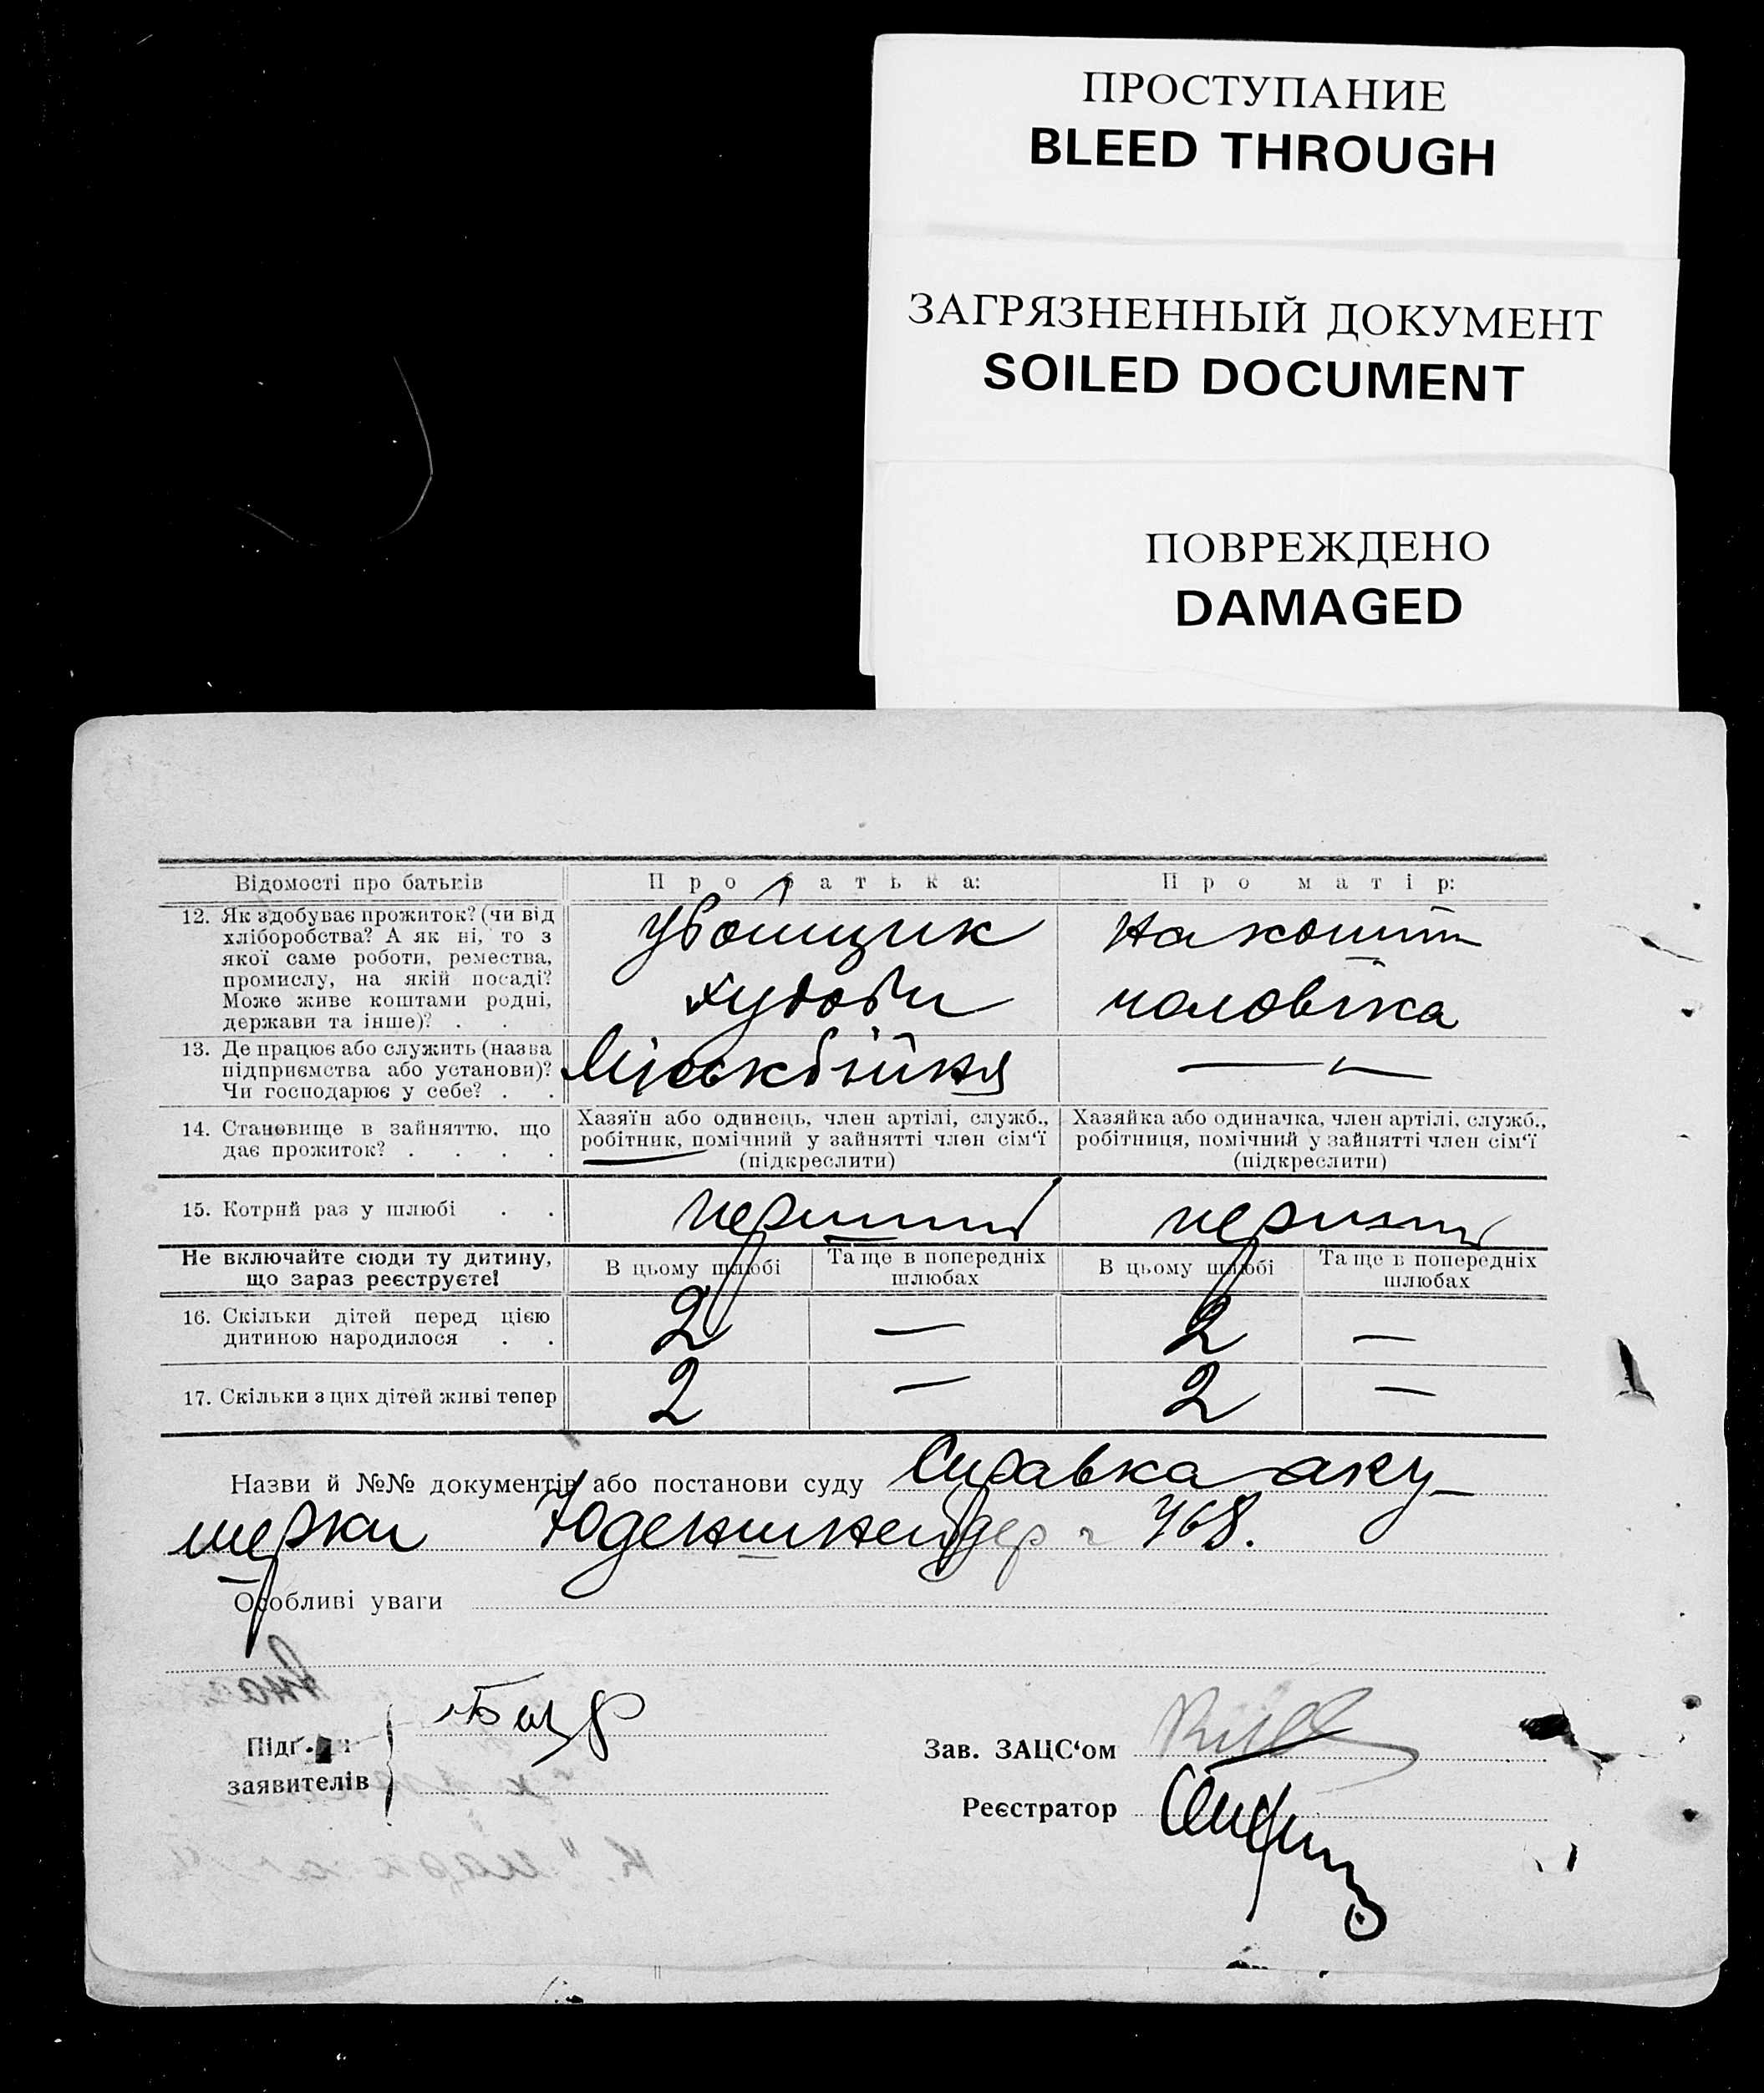 ПРОСТУПАНИЕ
BLEED THROUGH
ЗАГРЯЗНЕННЫЙ ДОКУМЕНТ
SOILED DOCUMENT
ПОВРЕЖДЕНО
DAMAGED
Відомості про батьків Про батька: Про матір:
12. Як здобуває прожиток? (чи від
хліборобства? А як ні, то з
якої саме роботи, ремества,
промислу, на якій посаді?
Може живе коштами родні,
держави та інше)? . .
убойщик на кошти
худоби чоловіка
13. Де працює або служить (назва
підприємства або установи)?
Чи господарює у себе? . .
Міськбійня — " —
14. Становище в зайняттю, що
дає прожиток? . . . .
Хазяїн або одинець, член артілі, служб.,
робітник, помічний у зайнятті член сім'ї
(підкреслити)
Хазяйка або одиначка, член артілі, служб.,
робітниця, помічний у зайнятті член сім'ї
(підкреслити)
15. Котрий раз у шлюбі . . перший перший
Не включайте сюди ту дитину,
що зараз реєструєте!
В цьому шлюбі Та ще в попередніх
шлюбах
В цьому шлюбі Та ще в попередніх
шлюбах
16. Скільки дітей перед цією
дитиною народилося . .
2 — 2 —
17. Скільки з цих дітей живі тепер 2 — 2 —
Назви й №№ документів або постанови суду Справка аку-
шерки 768.
Особливі уваги
заявителів
Зав. ЗАЦС'ом
Реєстратор